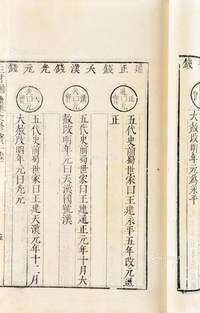 大赦改明年元爲永平
通正錢
通正元寶
五代史前蜀世家曰王建永平五年改元通
正
天漢錢
天漢元寶
五代史前蜀世家曰王建通正元年十月大
赦改明年元曰天漢國號漢
光元錢
五代史前蜀世家曰王建天漢元年十二月
大赦改明年元曰光元
三才圖會
五